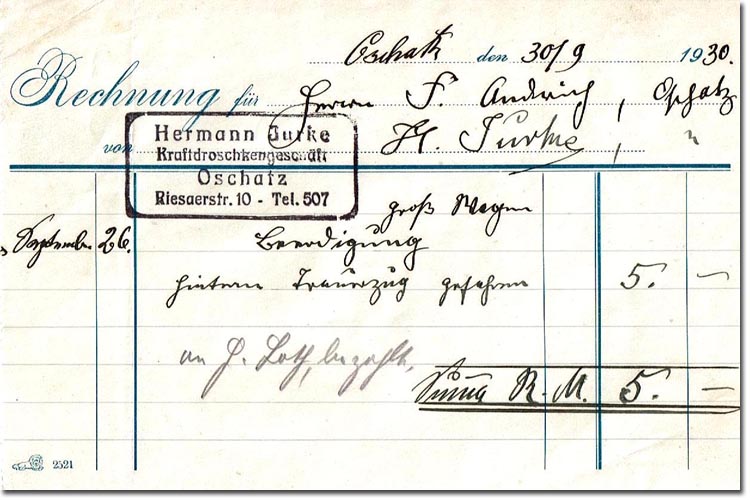 Oschatz den 30/9 1930.
Rechnung für Herrn F. Andrich, Oschatz
von H. Jurke, "
Hermann Jurke
Kraftdroschkengeschäft
Oschatz
Riesaerstr. 10 - Tel. 507
groß Wagen
September 26. Beerdigung
hinterm Trauerzug gefahren 5. —
an H. Loth, bezahlt.
Suma R. M. 5. —
2521